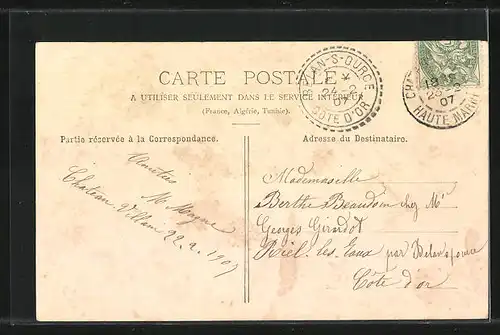 CARTE POSTALE
A UTILISER SEULEMENT DANS LE SERVICE INTÉRIEUR
(France, Algérie, Tunisie).
Partie réservée à la Correspondance.
Amitiés
M. Magne
Chateau Villain 22.2.1907
Adresse du Destinataire.
Mademoiselle
Berthe Beaudoin chez Mr
Georges Girardot
Riel-les-Eaux par Belan s/ource
Côte d'or
BELAN-S-OURCE
24-2
07
COTE D'OR
07
HAUTE-MARNE